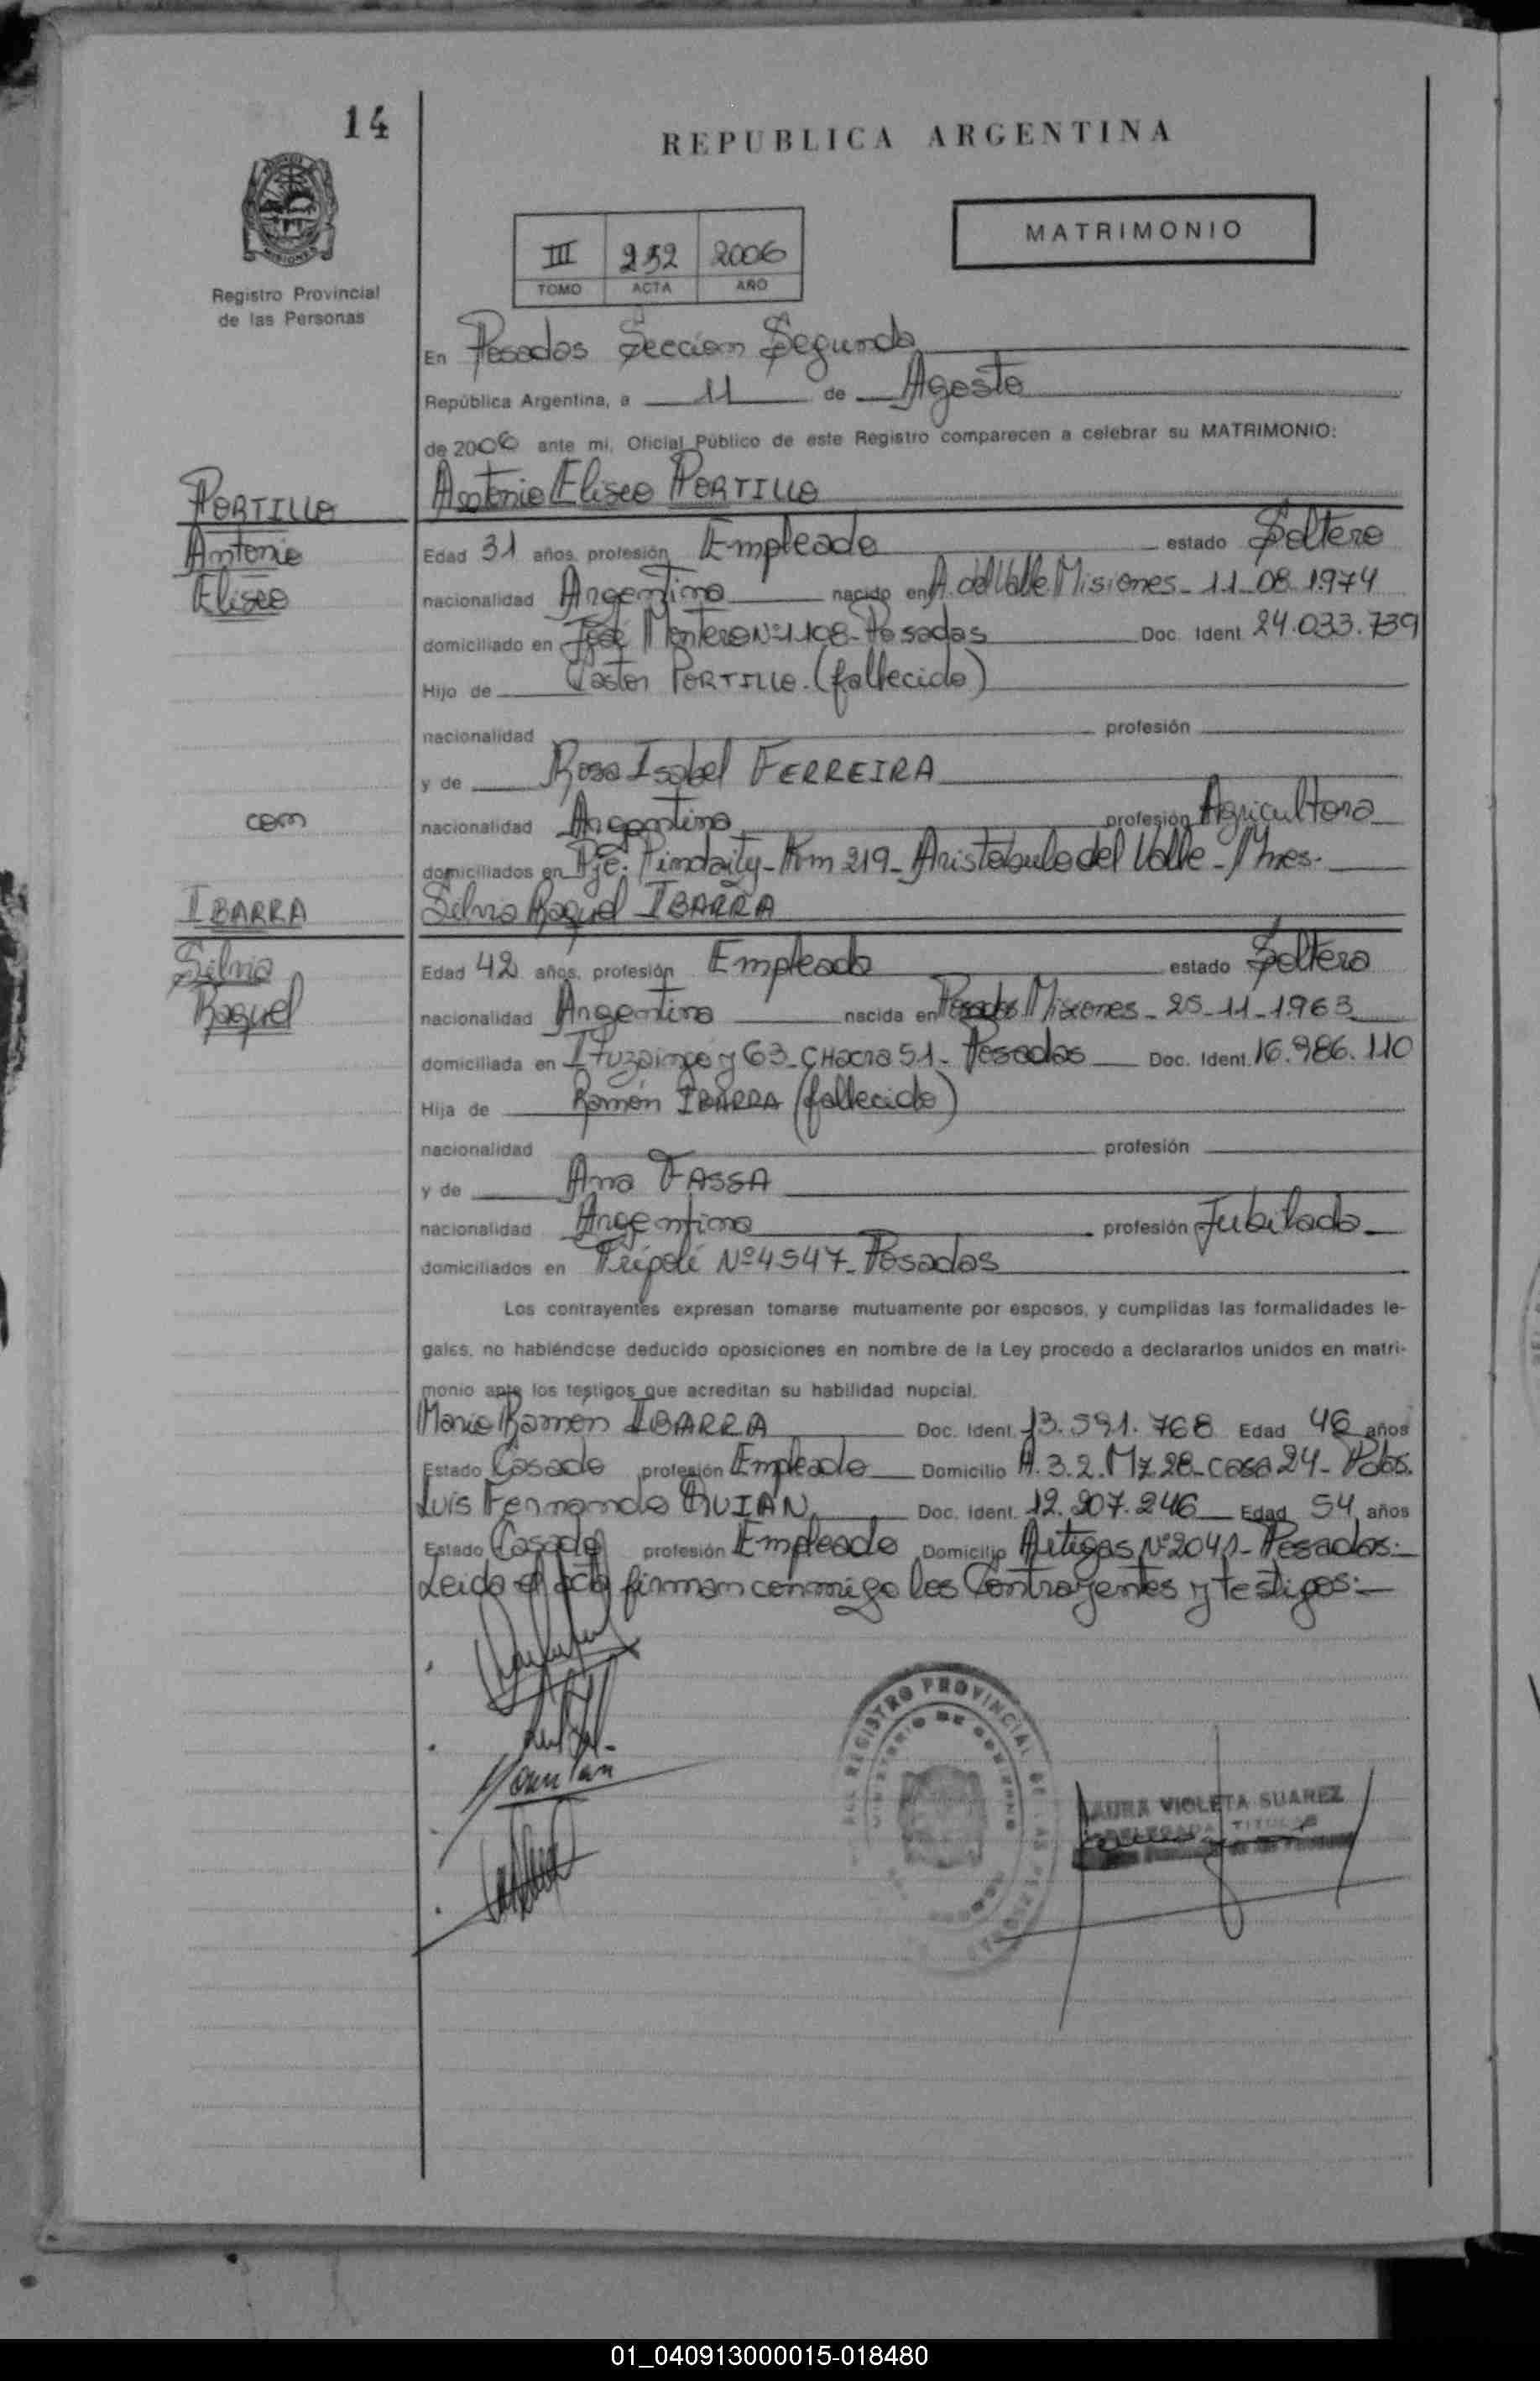 14
REPUBLICA ARGENTINA
MATRIMONIO
III 252 2006
TOMO ACTA AÑO
Registro Provincial
de las Personas
En Posadas Sección Segunda
República Argentina, a 11 de Agosto
de 2006 ante mi, Oficial Público de este Registro comparecen a celebrar su MATRIMONIO:
PORTILLO
Antonio
Eliseo
Antonio Eliseo PORTILLO
Edad 31 años, profesión Empleado estado Soltero
nacionalidad Argentina nacido en A. del Valle Misiones - 11-08-1974
domiciliado en José Montero Nº 1108 - Posadas Doc. Ident. 24.033.739
Hijo de Castor PORTILLO. (fallecido)
nacionalidad profesión
y de Rosa Isabel FERREIRA
con
nacionalidad Argentina profesión Agricultora
domiciliados en Pje. Pindaity - Km 219 - Aristobulo del Valle - Mnes.
IBARRA
Silvia
Raquel
Silvia Raquel IBARRA
Edad 42 años, profesión Empleada estado Soltera
nacionalidad Argentina nacida en Posadas Misiones - 25-11-1963
domiciliada en Ituzaingó y 63 - CHacra 51 - Posadas Doc. Ident. 16.986.110
Hija de Ramón IBARRA (fallecido)
nacionalidad profesión
y de Ana FASSA
nacionalidad Argentina profesión Jubilada
domiciliados en Trípoli Nº 4547 - Posadas
Los contrayentes expresan tomarse mutuamente por esposos, y cumplidas las formalidades le-
gales, no habiéndose deducido oposiciones en nombre de la Ley procedo a declararlos unidos en matri-
monio ante los testigos que acreditan su habilidad nupcial.
Mario Ramón IBARRA Doc. Ident. 13.591.768 Edad 46 años
Estado Casado profesión Empleado Domicilio A.3.2. Mz 28 - casa 24 - Pdas.
Luis Fernando Doc. Ident. 12.207.246 Edad 54 años
Estado Casado profesión Empleado Domicilio Artigas Nº 2041 - Posadas.-
Leida el acta firman conmigo los Contrayentes y testigos:-
REGISTRO PROVINCIAL DE LAS PERSONAS
MINISTERIO DE GOBIERNO
LAURA VIOLETA SUAREZ
DELEGADA TITULAR
01_040913000015-018480